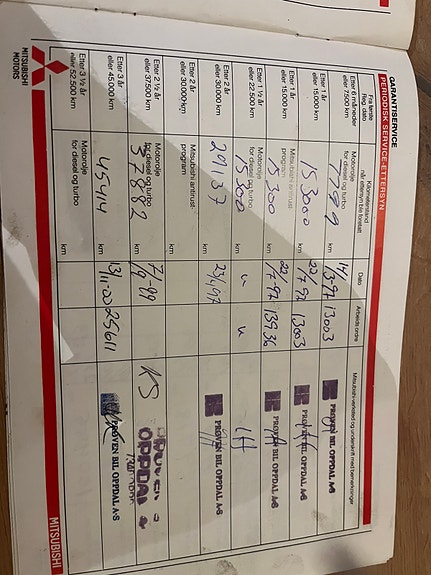 GARANTISERVICE
PERIODISK SERVICE-ETTERSYN
Fra første
Reg. dato
Kilometerstand
når ettersyn ble foretatt
Dato
Arbeids ordre
Mitsubishi-verksted og underskrift med bemerkninger
Etter 6 måneder
eller 7500 km
Motorolje
for diesel og turbo
km
13003
PRØVEN BIL OPPDAL A-S
Etter 1 år
eller 15.000 km
15.3000
km
22/7-97
13003
PRØVEN BIL OPPDAL A-S
Etter 1 år
eller 15.000 km
Mitsubishi antirust-
program
15300
km
22/7-97
13936
PRØVEN BIL OPPDAL A-S
Etter 1 ½ år
eller 22.500 km
Motorolje
for diesel og turbo
15300
km
Etter 2 år
eller 30.000 km
29137
km
PRØVEN BIL OPPDAL A-S
Etter 2 år
eller 30.000 km
Mitsubishi antirust-
program
km
Etter 2 ½ år
eller 37.500 km
Motorolje
for diesel og turbo
37882
km
7/9-99
KS
OPPDAL
Etter 3 år
eller 45.000 km
45414
km
13/11-00
25611
PRØVEN BIL OPPDAL A-S
Etter 3 ½ år
eller 52.500 km
Motorolje
for diesel og turbo
km
MITSUBISHI
MOTORS
MITSUBISHI